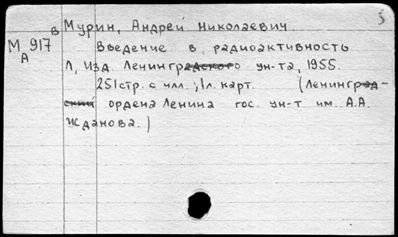 3
В Мурин, Андрей Николаевич
М 917 Введение в радиоактивность
А
Л, Изд. Ленинградского ун-та, 1955.
251стр. с илл.; 1л. карт. (Ленинград-
ский ордена Ленина гос. ун-т им. А.А.
Жданова.)